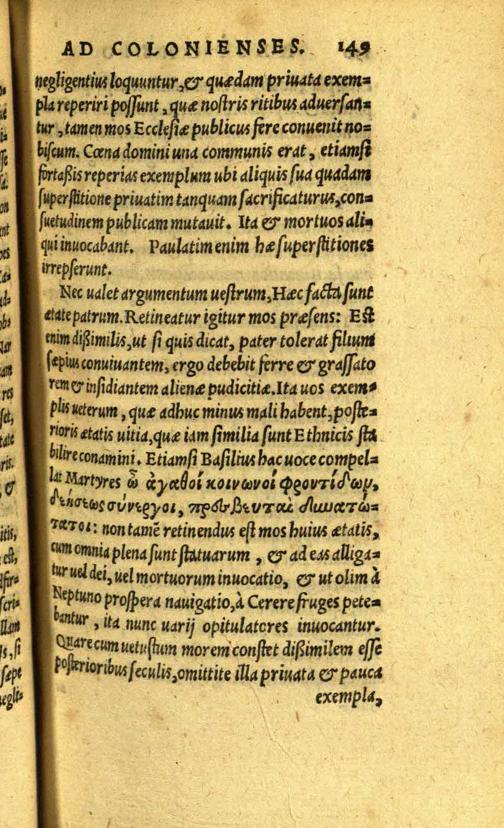 AD COLONIENSES. 149
negligentius loquuntur, & quædam priuata exem=
pla reperiri possunt, quæ nostris ritibus aduersan=
tur, tamen mos Ecclesiæ publicus fere conuenit no=
biscum. Cœna domini una communis erat, etiamsi
fortaßis reperias exemplum ubi aliquis sua quadam
superstitione priuatim tanquam sacrificaturus, con=
suetudinem publicam mutauit. Ita & mortuos ali=
qui inuocabant. Paulatim enim hæ superstitiones
irrepserunt.
Nec ualet argumentum uestrum, Hæc facta sunt
ætate patrum. Retineatur igitur mos præsens: Est
enim dißimilis, ut si quis dicat, pater tolerat filium
sæpius conuiuantem, ergo debebit ferre & grassato
rem & insidiantem alienæ pudicitiæ. Ita uos exem=
plis ueterum, quæ adhuc minus mali habent, poste=
rioris ætatis uitia, quæ iam similia sunt Ethnicis sta
bilire conamini. Etiamsi Basilius hac uoce compel=
lat Martyres ὦ ἀγαθοὶ κοινωνοὶ φροντίδων,
δεήσεως σύνεργοι, πρέσβευται δυνατώ=
τατοι: non tamẽ retinendus est mos huius ætatis,
cum omnia plena sunt statuarum, & ad eas alliga=
tur uel dei, uel mortuorum inuocatio, & ut olim à
Neptuno prospera nauigatio, à Cerere fruges pete=
bantur, ita nunc uarij opitulatores inuocantur.
Quare cum uetustum morem constet dißimilem esse
posterioribus seculis, omittite illa priuata & pauca
exempla,